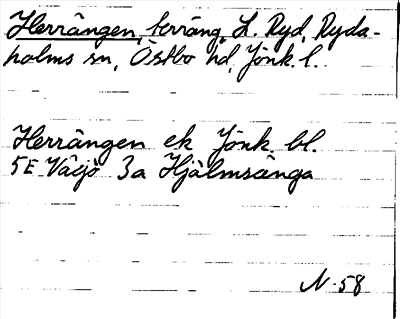 Herrängen, terräng, L. Ryd, Ryda-
holms sn, Östbo hd, Jönk. l.
Herrängen ek Jönk. bl.
5E Växjö 3a Hjälmsänga
N-58